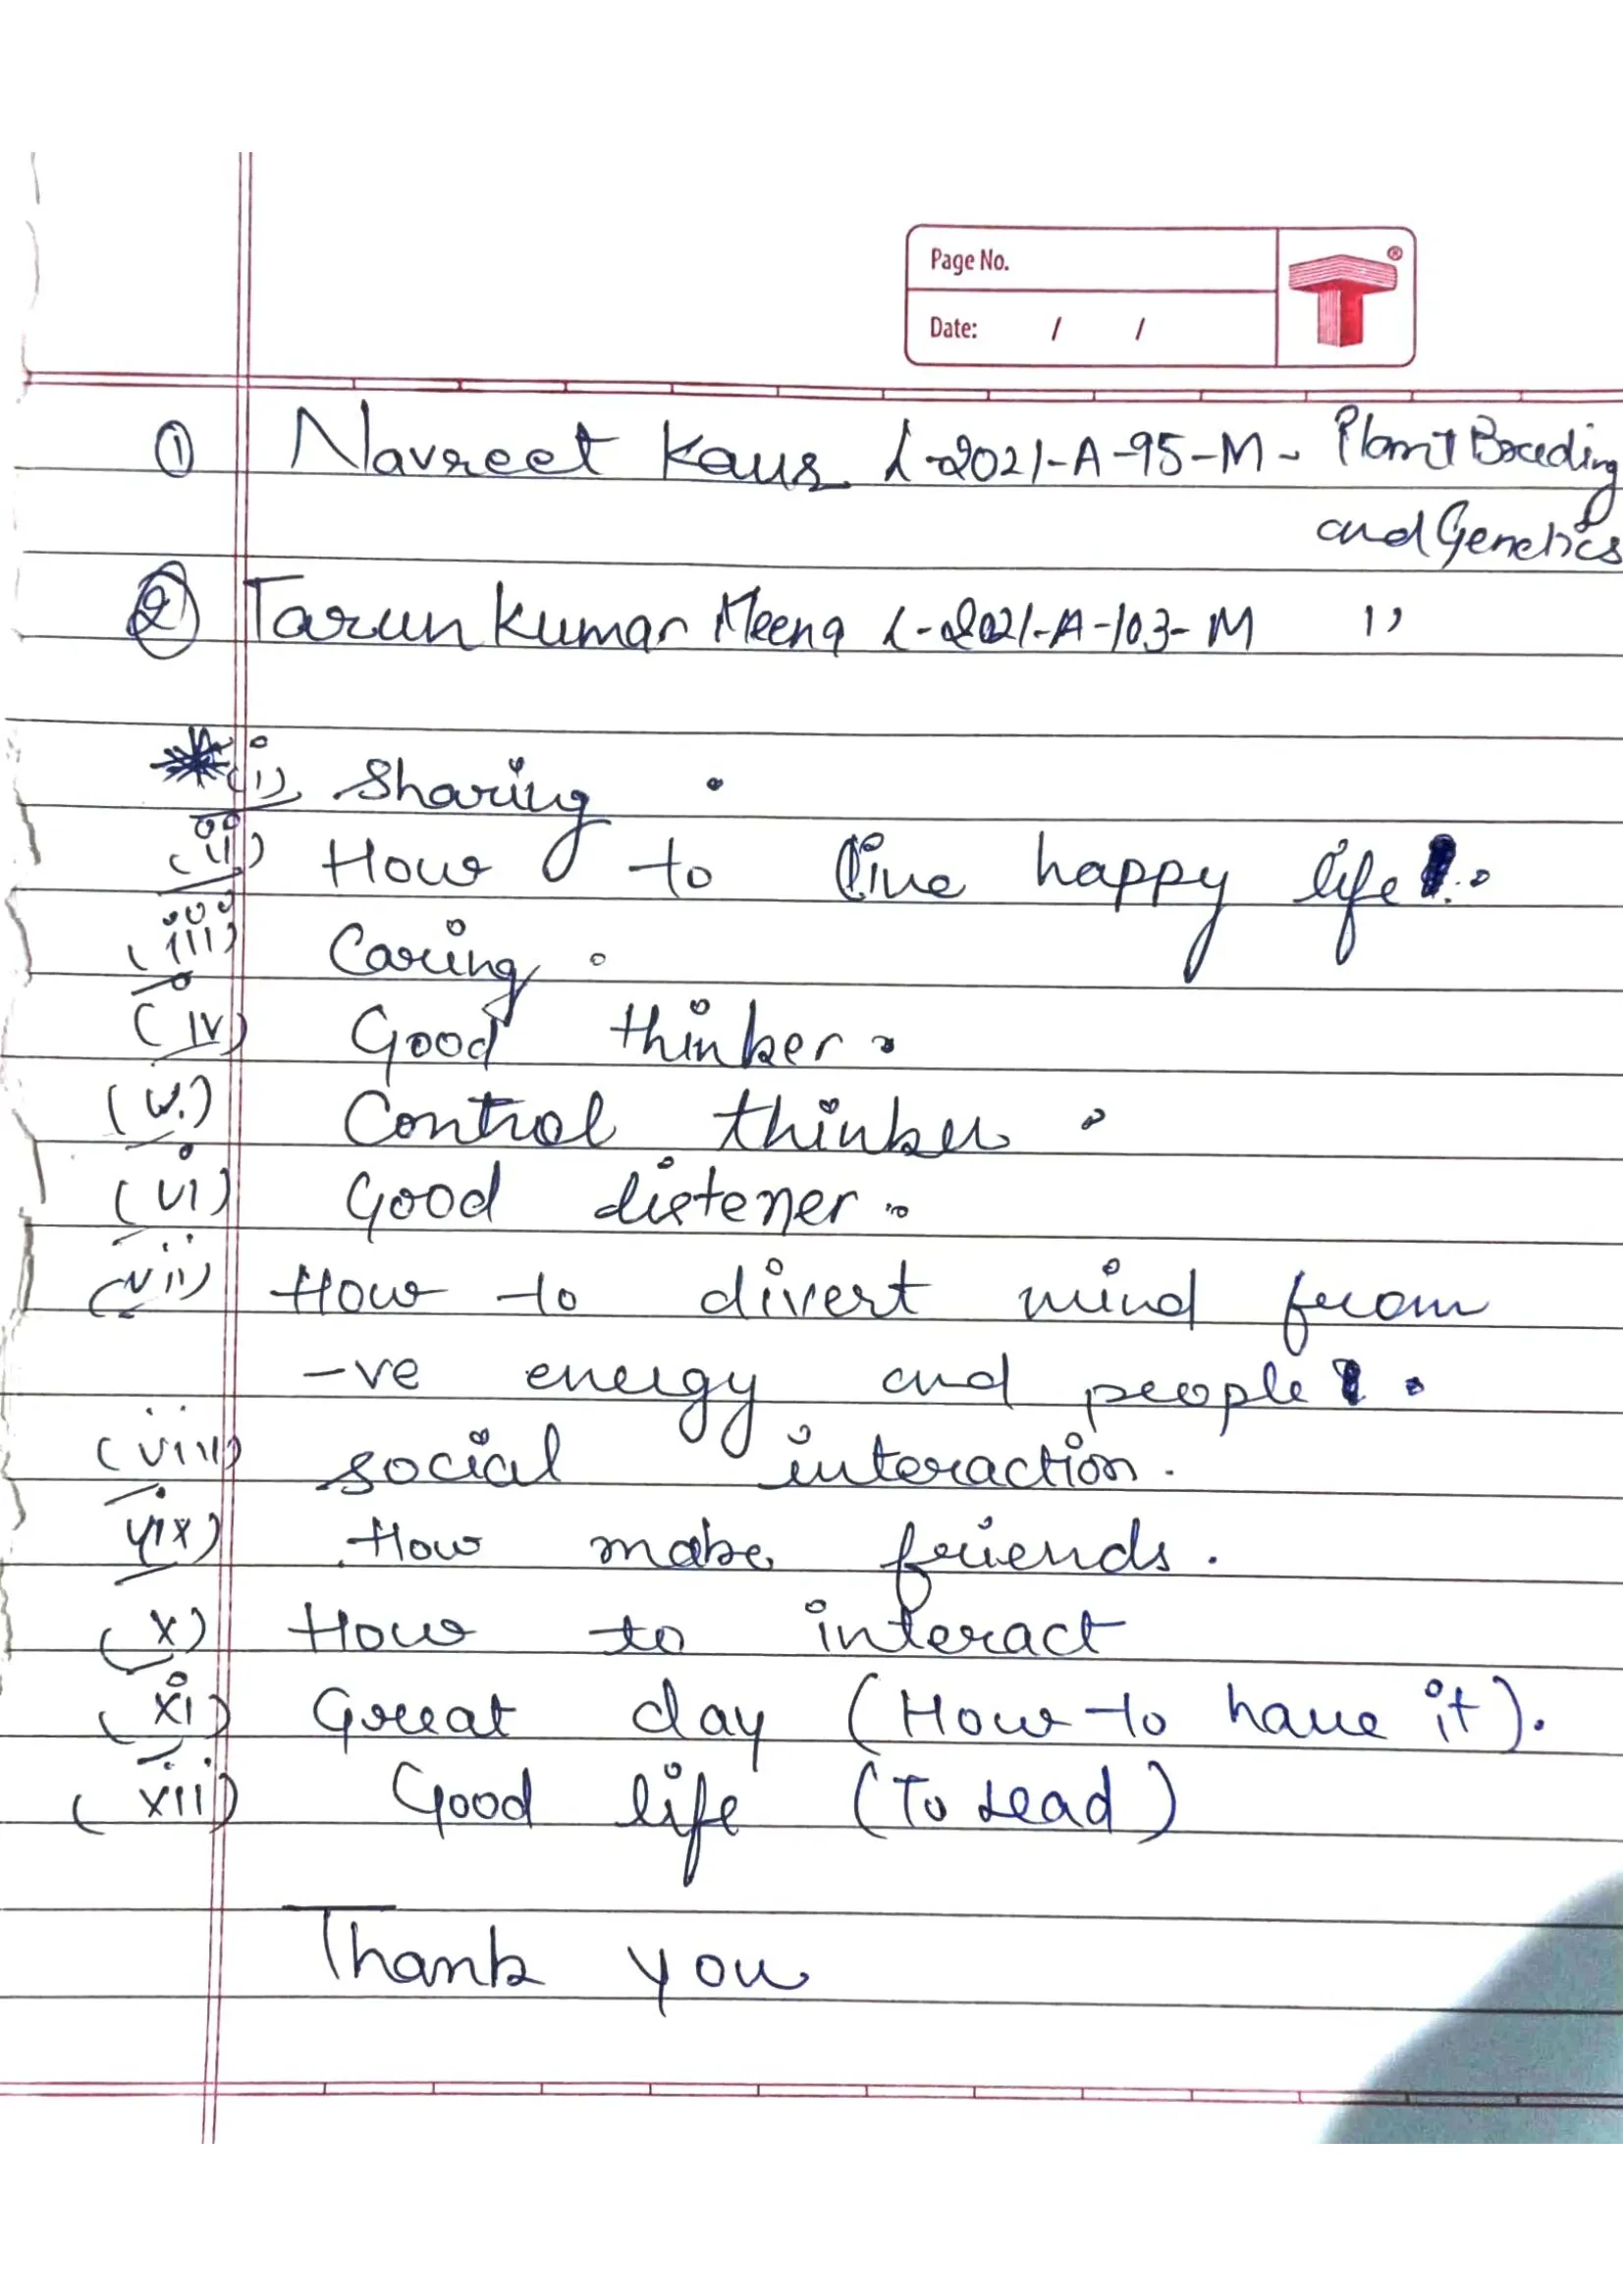 Page No.
Date: / /
① Navreet Kaur L-2021-A-95-M- Plant Breeding
and Genetics
② Tarun Kumar Meena L-2021-A-103-M 11
(i) Sharing .
(ii) How to live happy life .
(iii) Caring .
(iv) Good thinker .
(v.) Control thinker .
(vi) Good listener .
(vii) How to divert mind from
-ve energy and people .
(viii) social interaction .
(ix) How make friends .
(x) How to interact
(xi) Great day (How to have it).
(xii) Good life (To Lead)
Thank you